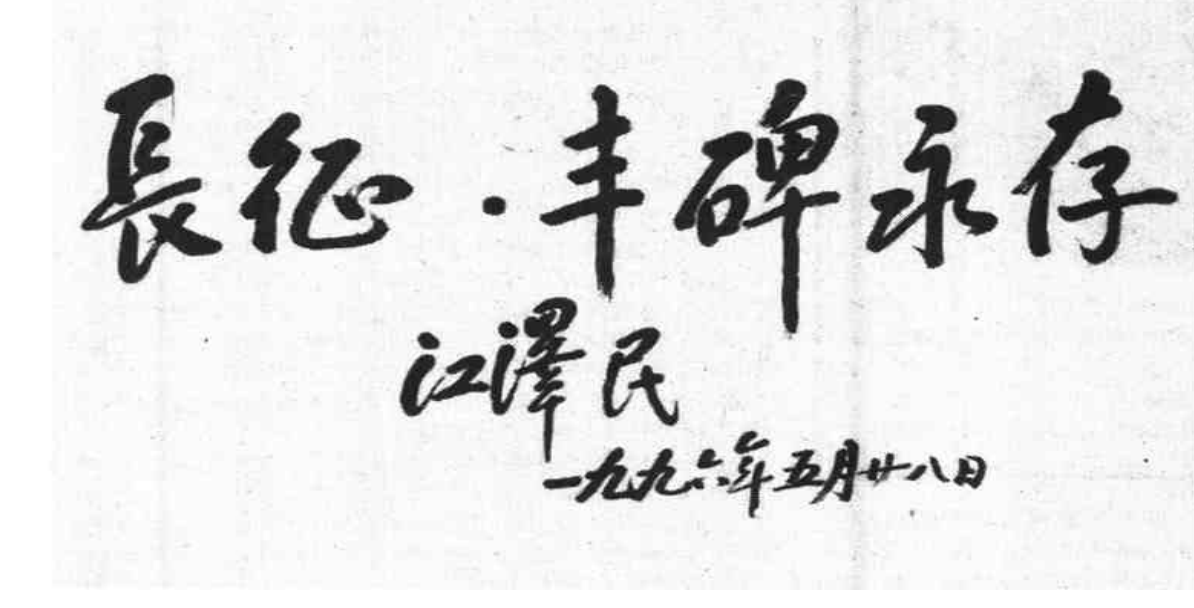 長征·丰碑永存
江澤民
一九九六年五月廿八日